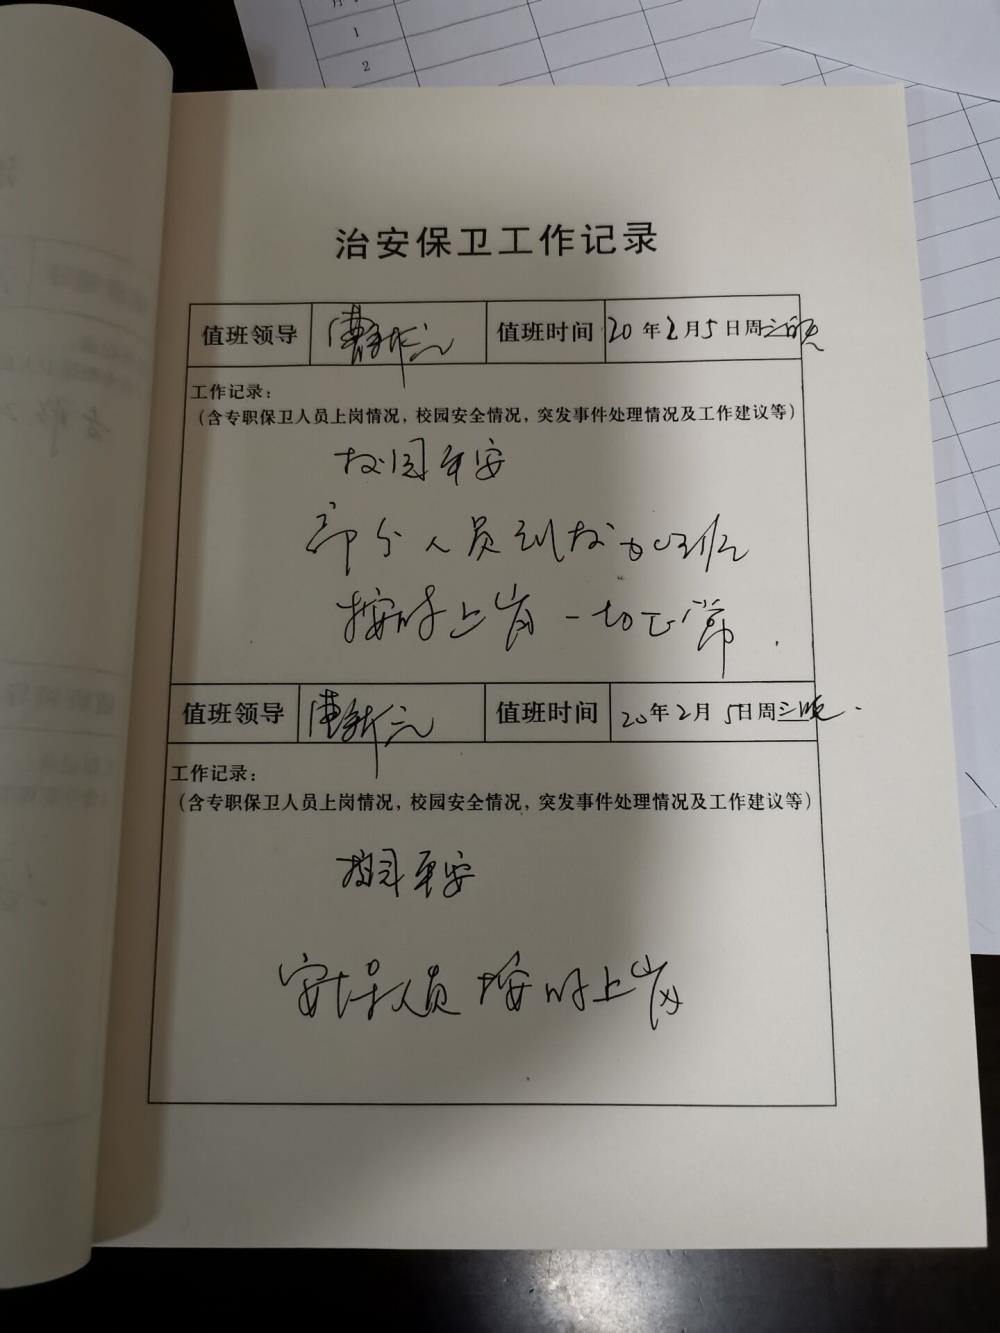 1
2
治安保卫工作记录
值班领导 曹新仁 值班时间 20年2月5日周三晚
工作记录：
（含专职保卫人员上岗情况，校园安全情况，突发事件处理情况及工作建议等）
校园平安
部分人员到校
按时上岗 一切正常.
值班领导 曹新仁 值班时间 20年2月5日周三晚.
工作记录：
（含专职保卫人员上岗情况，校园安全情况，突发事件处理情况及工作建议等）
校园平安
安保人员按时上岗